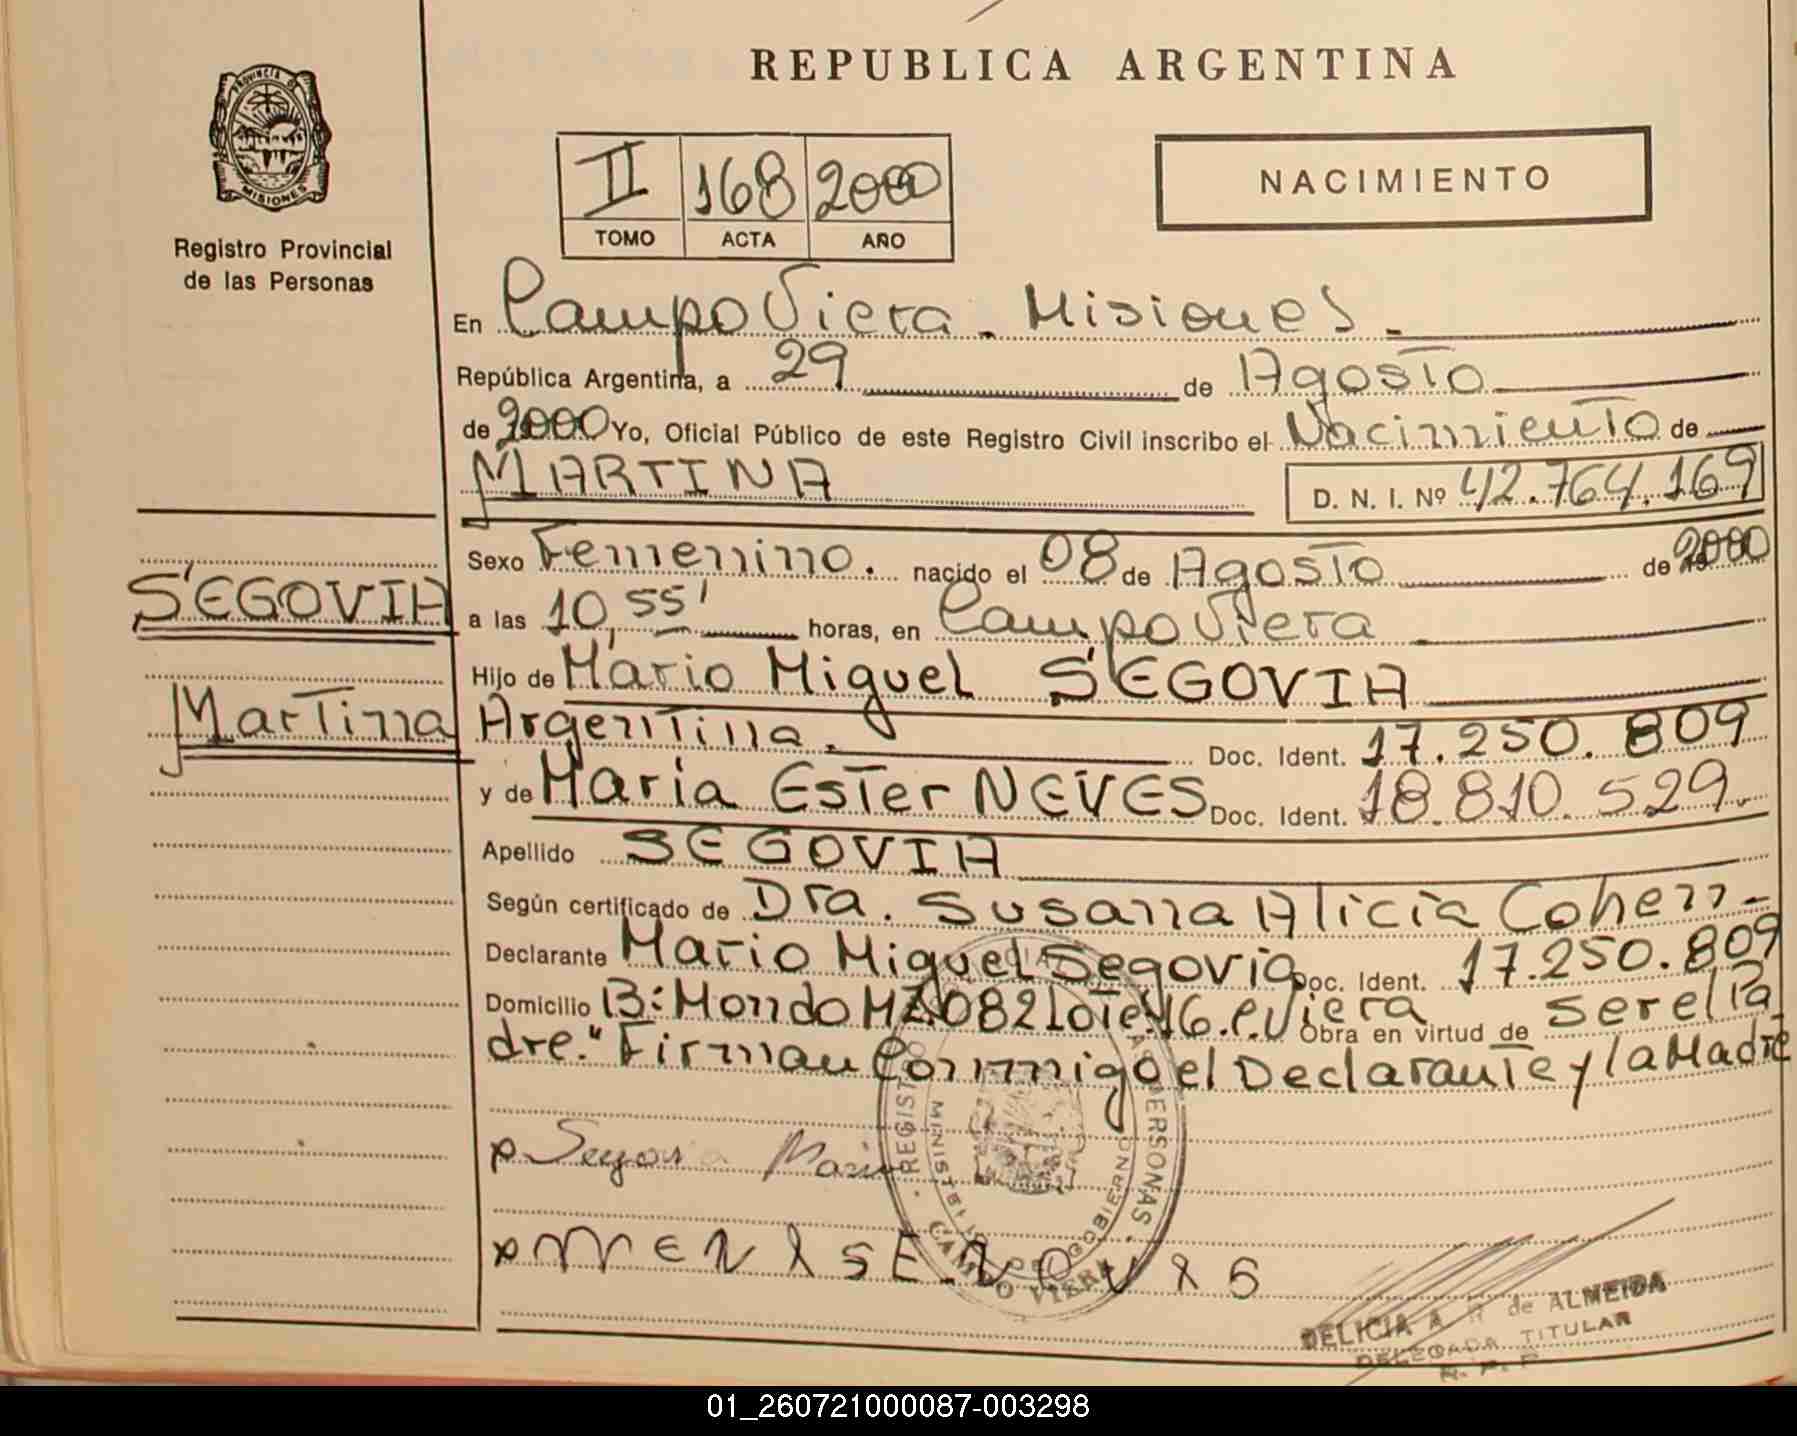 REPUBLICA ARGENTINA
PROVINCIA DE MISIONES
Registro Provincial
de las Personas
II 168 2000
TOMO ACTA AÑO
NACIMIENTO
En Campo Viera - Misiones.
República Argentina, a 29 de Agosto
de 2000 Yo, Oficial Público de este Registro Civil inscribo el Nacimiento de
MARTINA D. N. I. Nº 42.764.169
Sexo Femenino. nacido el 08 de Agosto de 2000
SEGOVIA
a las 10,55' horas, en Campo Viera
Hijo de Mario Miguel SEGOVIA
Martina
Argentina. Doc. Ident. 17.250.809
y de Maria Ester NEVES Doc. Ident. 18.810.529
Apellido SEGOVIA
Según certificado de Dra. Susana Alicia Cohen -
Declarante Mario Miguel Segovia Doc. Ident. 17.250.809
Domicilio B: Mondo MZ 082 lote 16. C. Viera Obra en virtud de ser el Pa
dre." Firman Conmigo el Declarante y la Madre
Segovia Mario
REGISTRO PERSONAS
MINISTERIO DE GOBIERNO
CAMPO VIERA
DELICIA A R de ALMEIDA
DELEGADA TITULAR
R. P. P
01_260721000087-003298